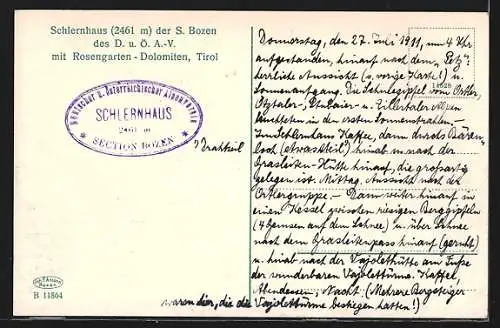 Schlernhaus (2461 m) der S. Bozen
des D. u. Ö. A.-V.
mit Rosengarten - Dolomiten, Tirol
Deutscher u. Österreichischer Alpenverein
SCHLERNHAUS
2461 m
* SECTION BOZEN *
B 11864
Donnerstag, den 27. Juli 1911, um 4 Uhr
aufgestanden, hinauf nach dem „Petz“
herrliche Aussicht (s. vorige Karte!) u.
Sonnenaufgang. Die Schneegipfel vom Ortler,
Ötztaler-, Stubaier- u. Zillertaler Alpen
leuchteten in den ersten Sonnenstrahlen. –
Im Schlernhaus Kaffee, dann durchs Bären-
loch (etwas steil) hinab u. nach der
Grasleiten-Hütte hinauf, die großartig
gelegen ist. Mittag. Aussicht nach der
Ortlergruppe. – Dann weiter hinauf in
einen Kessel zwischen riesigen Berggipfeln
(4 Gemsen auf dem Schnee) u. über Schnee
nach dem Grasleitenpass hinauf
u. hinab nach der Vajolethütte am Fuße
der wunderbaren Vajolettürme. Kaffee,
Abendessen, Nacht. (Mehrere Bergsteiger
waren hier, die die Vajolettürme bestiegen hatten!)